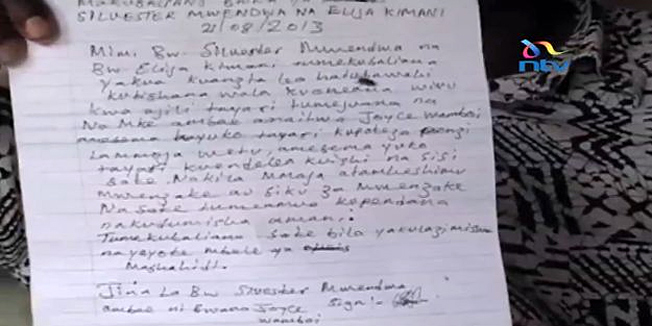 MAKUBALIANO BAINA YA
SILVESTER MWENDWA NA ELIJA KIMANI
21/08/2013
Mimi Bw Silvester Mwendwa na
Bw Elija Kimani tumekubaliana
yakuo kuangia leo hatutawahi
kubishana wala kuoneana wivu
kwa ajili tayari tumejuana na
Na Mke ambae anaitwa Joyce Wamboi
anesema hayuko tayari kupoteza penzi
La mmoja wetu, amesema yuko
tayari kwendelea kuishi na sisi
sote. Na kila mmoja ataheshimu
Mwenzake au siku za Mwenzake
Na sote tumeamua kupendana
nakudumisha amani.
Tumekubaliana sote bila yakulazimiswa
nayeyote mbele ya
Mashahidi.
Jina La Bw Silvester Mwendwa
ambae ni Bwana Joyce Sign:-
Wamboi
ntv